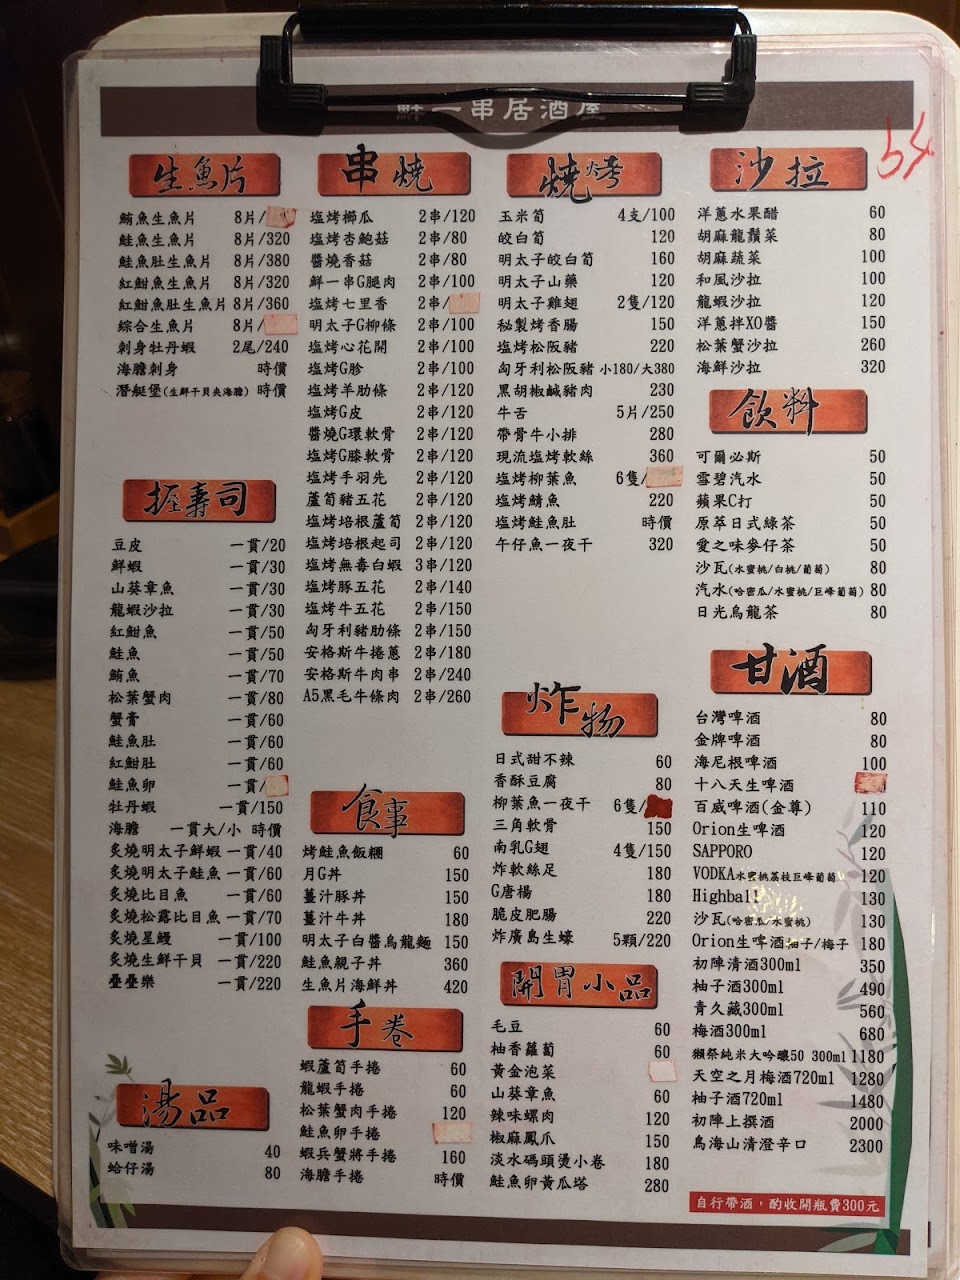 鮮一串居酒屋
54
生魚片
鮪魚生魚片 8片/
鮭魚生魚片 8片/320
鮭魚肚生魚片 8片/380
紅魽魚生魚片 8片/320
紅魽魚肚生魚片 8片/360
綜合生魚片 8片/
刺身牡丹蝦 2尾/240
海膽刺身 時價
潛艇堡(生鮮干貝夾海膽) 時價
握壽司
豆皮 一貫/20
鮮蝦 一貫/30
山葵章魚 一貫/30
龍蝦沙拉 一貫/30
紅魽魚 一貫/50
鮭魚 一貫/50
鮪魚 一貫/70
松葉蟹肉 一貫/80
蟹膏 一貫/60
鮭魚肚 一貫/60
紅魽肚 一貫/60
鮭魚卵 一貫/
牡丹蝦 一貫/150
海膽 一貫大/小 時價
炙燒明太子鮮蝦 一貫/40
炙燒明太子鮭魚 一貫/60
炙燒比目魚 一貫/60
炙燒松露比目魚 一貫/70
炙燒星鰻 一貫/100
炙燒生鮮干貝 一貫/220
疊疊樂 一貫/220
湯品
味噌湯 40
蛤仔湯 80
串燒
塩烤櫛瓜 2串/120
塩烤杏鮑菇 2串/80
醬燒香菇 2串/80
鮮一串G腿肉 2串/100
塩烤七里香 2串/
明太子G柳條 2串/100
塩烤心花開 2串/100
塩烤G胗 2串/100
塩烤羊肋條 2串/120
塩烤G皮 2串/120
醬燒G環軟骨 2串/120
塩烤G膝軟骨 2串/120
塩烤手羽先 2串/120
蘆筍豬五花 2串/120
塩烤培根蘆筍 2串/120
塩烤培根起司 2串/120
塩烤無毒白蝦 3串/120
塩烤豚五花 2串/140
塩烤牛五花 2串/150
匈牙利豬肋條 2串/150
安格斯牛捲蔥 2串/180
安格斯牛肉串 2串/240
A5黑毛牛條肉 2串/260
食事
烤鮭魚飯糰 60
月G丼 150
薑汁豚丼 150
薑汁牛丼 180
明太子白醬烏龍麵 150
鮭魚親子丼 360
生魚片海鮮丼 420
手卷
蝦蘆筍手捲 60
龍蝦手捲 60
松葉蟹肉手捲 120
鮭魚卵手捲
蝦兵蟹將手捲 160
海膽手捲 時價
燒烤
玉米筍 4支/100
皎白筍 120
明太子皎白筍 160
明太子山藥 120
明太子雞翅 2隻/120
秘製烤香腸 150
塩烤松阪豬 220
匈牙利松阪豬 小180/大380
黑胡椒鹹豬肉 230
牛舌 5片/250
帶骨牛小排 280
現流塩烤軟絲 360
塩烤柳葉魚 6隻/
塩烤鯖魚 220
塩烤鮭魚肚 時價
午仔魚一夜干 320
炸物
日式甜不辣 60
香酥豆腐 80
柳葉魚一夜干 6隻/
三角軟骨 150
南乳G翅 4隻/150
炸軟絲足 180
G唐楊 180
脆皮肥腸 220
炸廣島生蠔 5顆/220
開胃小品
毛豆 60
柚香蘿蔔 60
黃金泡菜
山葵章魚 60
辣味螺肉 120
椒麻鳳爪 150
淡水碼頭燙小卷 180
鮭魚卵黃瓜塔 280
沙拉
洋蔥水果醋 60
胡麻龍鬚菜 80
胡麻蔬菜 100
和風沙拉 100
龍蝦沙拉 120
洋蔥拌XO醬 150
松葉蟹沙拉 260
海鮮沙拉 320
飲料
可爾必斯 50
雪碧汽水 50
蘋果C打 50
原萃日式綠茶 50
愛之味麥仔茶 50
沙瓦(水蜜桃/白桃/葡萄) 80
汽水(哈密瓜/水蜜桃/巨峰葡萄) 80
日光烏龍茶 80
甘酒
台灣啤酒 80
金牌啤酒 80
海尼根啤酒 100
十八天生啤酒
百威啤酒(金尊) 110
Orion生啤酒 120
SAPPORO 120
VODKA水蜜桃荔枝巨峰葡萄 120
Highball 130
沙瓦(哈密瓜/水蜜桃) 130
Orion生啤酒柚子/梅子 180
初陣清酒300ml 350
柚子酒300ml 490
青久藏300ml 560
梅酒300ml 680
獺祭純米大吟釀50 300ml 1180
天空之月梅酒720ml 1280
柚子酒720ml 1480
初陣上撰酒 2000
鳥海山清澄辛口 2300
自行帶酒，酌收開瓶費300元